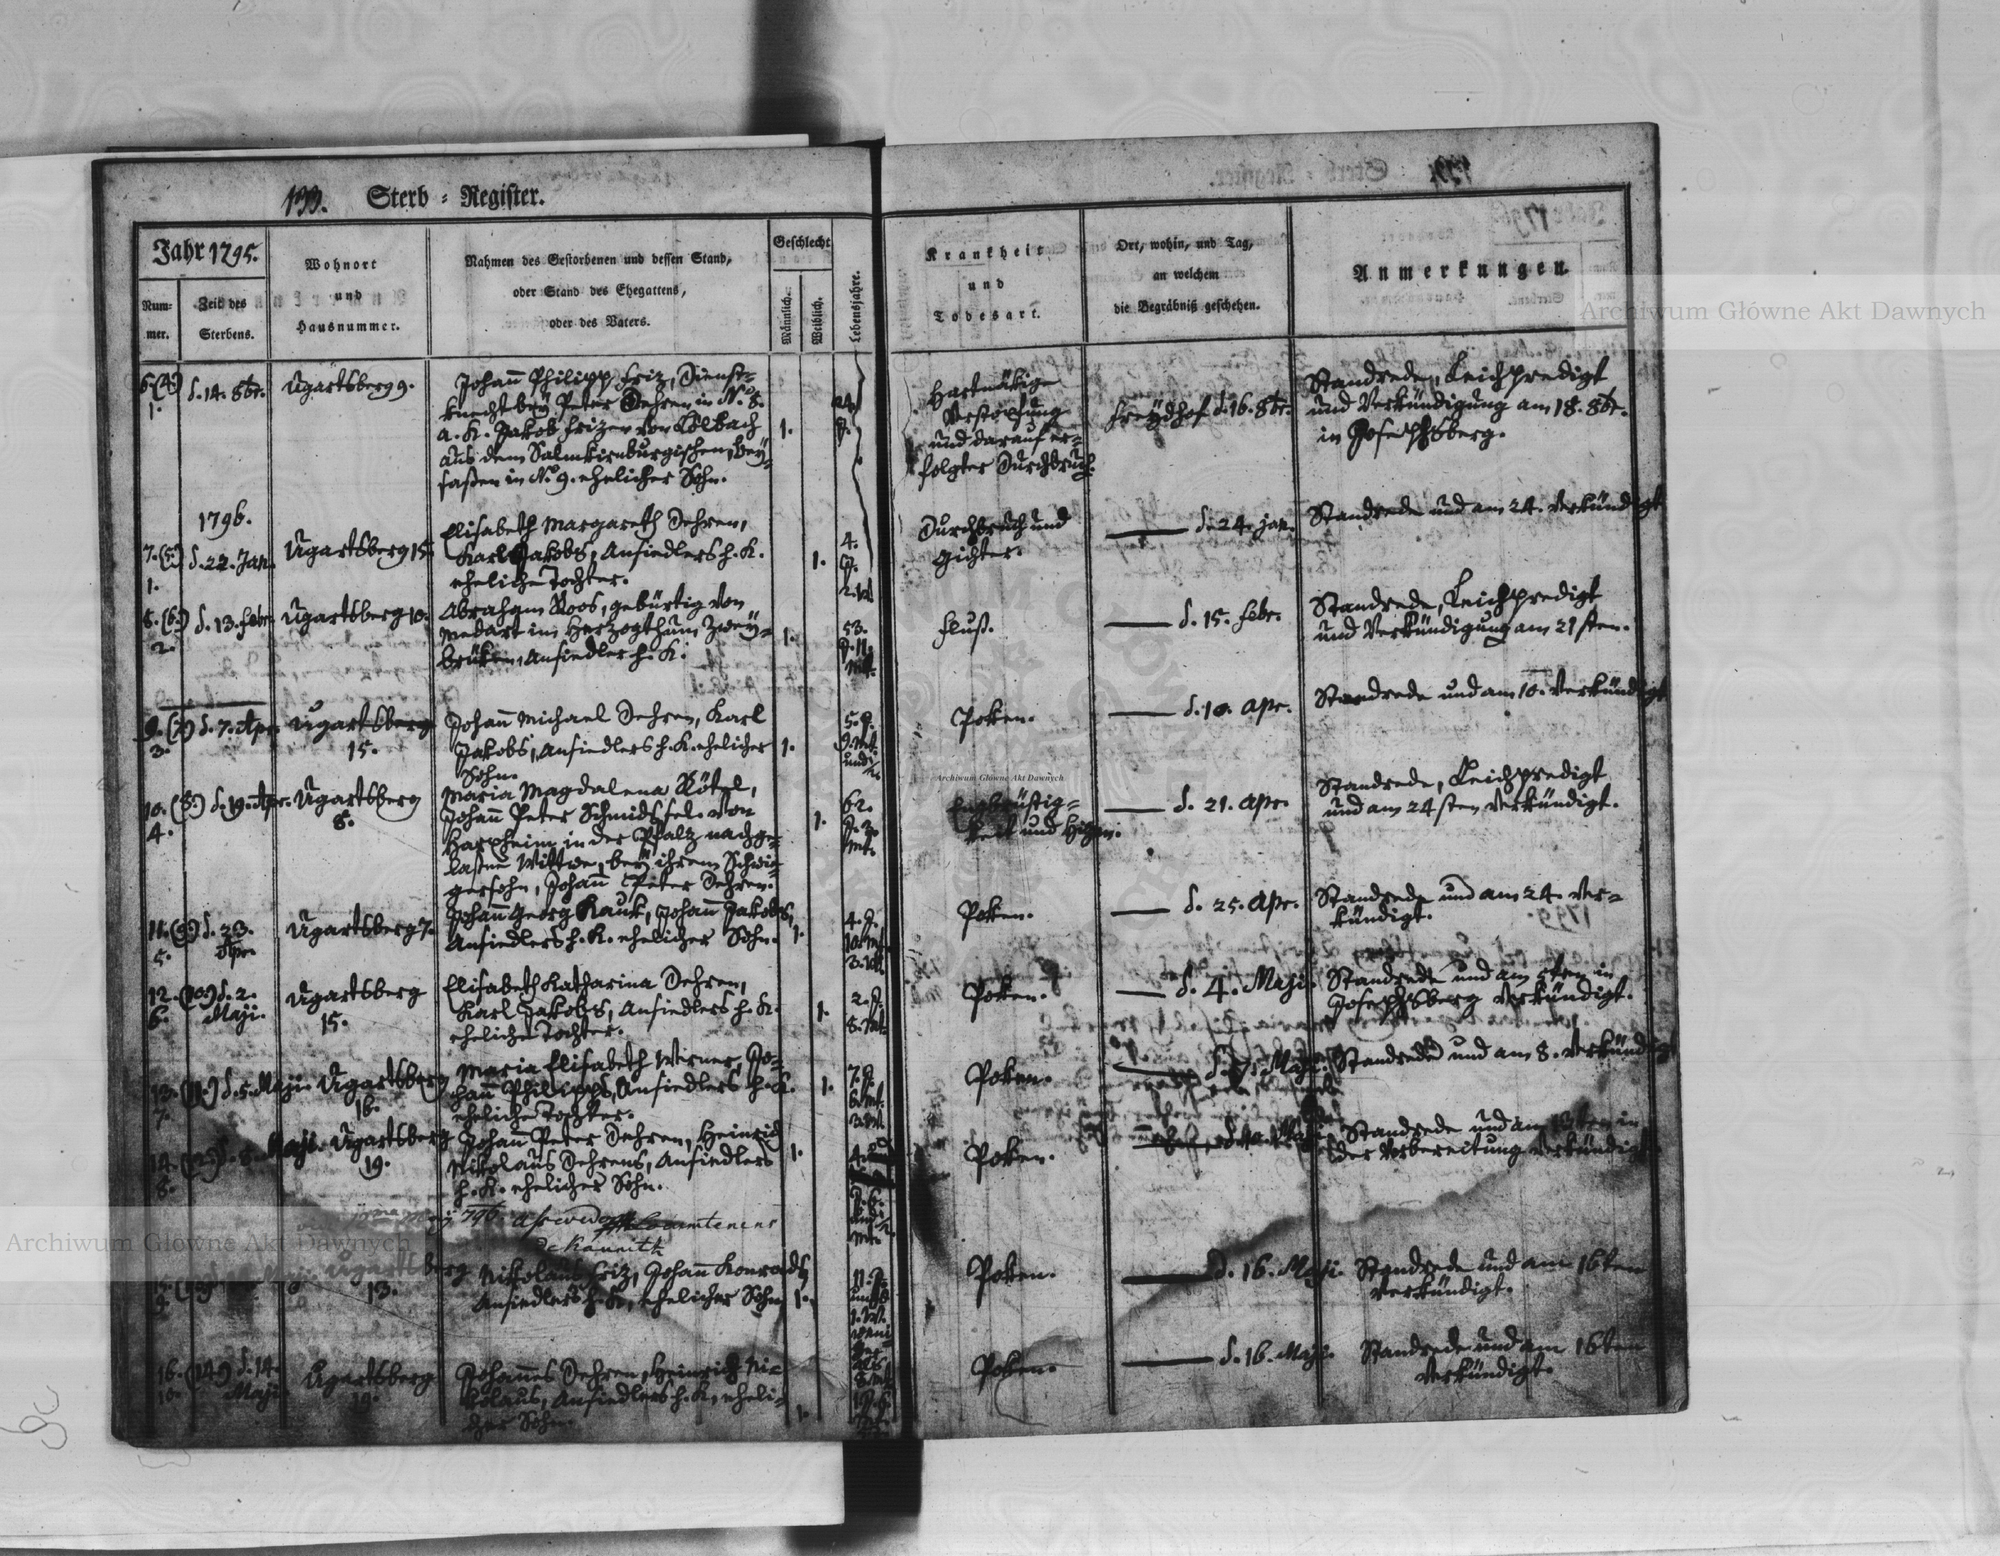 133. Sterb = Register.
Jahr 1795.
Num=
mer.
Zeit des
Sterbens.
Wohnort
und
Hausnummer.
Nahmen des Gestorbenen und dessen Stand,
oder Stand des Ehegattens,
oder des Vaters.
Geschlecht
Männlich.
Weiblich.
Lebensjahre.
Krankheit
und
Todesart.
Ort, wohin, und Tag,
an welchem
die Begräbniß geschehen.
Anmerkungen.
6. (4.)
1.
d. 14. 8br.
Ugartsberg 9.
Johann Philipp Friz, Dienst=
knecht bey Peter Dehren in N. 8.
A. K. Jakob Frizen von
aus dem Salmkirnburgischen, Bey=
saßen in No. 9. ehelicher Sohn.
1.
24
J.
Hartnäkige
Verstopfung
und darauf er=
folgter Durchbruch.
Freydhof d. 16. 8br.
Standrede, Leichpredigt
und Verkündigung am 18. 8br.
in Josephsberg.
1796.
7. (5.)
1.
d. 22. Jan.
Ugartsberg 15.
Elisabeth Margareth Dehren,
Karl Jakobs, Ansiedlers h. K.
eheliche Tochter.
1.
4.
J.
Durchbruch und
Gichter.
d. 24. Jan.
Standrede und am 24. verkündigt
8. (6.)
2.
d. 13. Febr.
Ugartsberg 10.
Abraham Roos, gebürtig von
Medart im Herzogthum Zwey=
brüken, Ansiedler h. K.
1.
53.
J. 11.
Mt.
Fluß.
d. 15. Febr.
Standrede, Leichpredigt
und Verkündigung am 21sten.
9. (7.)
3.
d. 7. Apr.
Ugartsberg
15.
Johann Michael Dehren, Karl
Jakobs, Ansiedlers h. K. ehelicher
Sohn.
1.
5. J.
9. Mt.
Poken.
d. 10. Apr.
Standrede und am 10. verkündigt
10. (8.)
4.
d. 19. Apr.
Ugartsberg
8.
Maria Magdalena Rötel,
Johann Peter Schmids sel. von
Harxheim in der Pfalz nachge=
laßene Wittwe, bey ihrem Schwie=
gersohn, Johann Peter Dehren.
1.
62.
J. 3.
Mt.
Engbrüstig=
keit und
d. 21. Apr.
Standrede, Leichpredigt
und am 24sten verkündigt.
11. (9.)
5.
d. 23.
Apr.
Ugartsberg 7.
Johann Georg Kauk, Johann Jakobs,
Ansiedlers h. K. ehelicher Sohn.
1.
4. J.
10. Mt.
Poken.
d. 25. Apr.
Standrede und am 24. ver=
kündigt.
12. (10.)
6.
d. 2.
Maji.
Ugartsberg
15.
Elisabeth Katharina Dehren,
Karl Jakobs, Ansiedlers h. K.
eheliche Tochter.
1.
2. J.
8. Mt.
Poken.
d. 4. Maji.
Standrede und am 5ten in
Josephsberg verkündigt.
13. (11.)
7.
d. 5. Maji.
Ugartsberg
16.
Maria Elisabeth Werner, Jo=
hann Philipps, Ansiedlers h. K.
eheliche Tochter.
1.
7. J.
6. Mt.
Poken.
d. 7. Maji.
Standrede und am 8. verkündigt
14. (12.)
8.
8. Maji.
Ugartsberg
19.
Johann Peter Dehren, Heinrich
Nikolaus Dehrens, Ansiedlers
h. K. ehelicher Sohn.
1.
Poken.
Standrede und am in
der Vorbereitung verkündigt
796.
Ugartsberg
13.
Nikolaus Friz, Johann Konrads,
Ansiedlers h. K., ehelicher Sohn
1.
11. J.
Poken.
d. 16. Maji.
Standrede und am 16ten
verkündigt.
16. (14.)
10.
d. 14.
Maji.
Ugartsberg
19.
Johannes Dehren, Heinrich Ni=
kolaus, Ansiedlers h. K., eheli=
cher Sohn.
1.
Poken.
d. 16. Maji.
Standrede und am 16ten
verkündigt.
Archiwum Główne Akt Dawnych
Archiwum Główne Akt Dawnych
Archiwum Główne Akt Dawnych